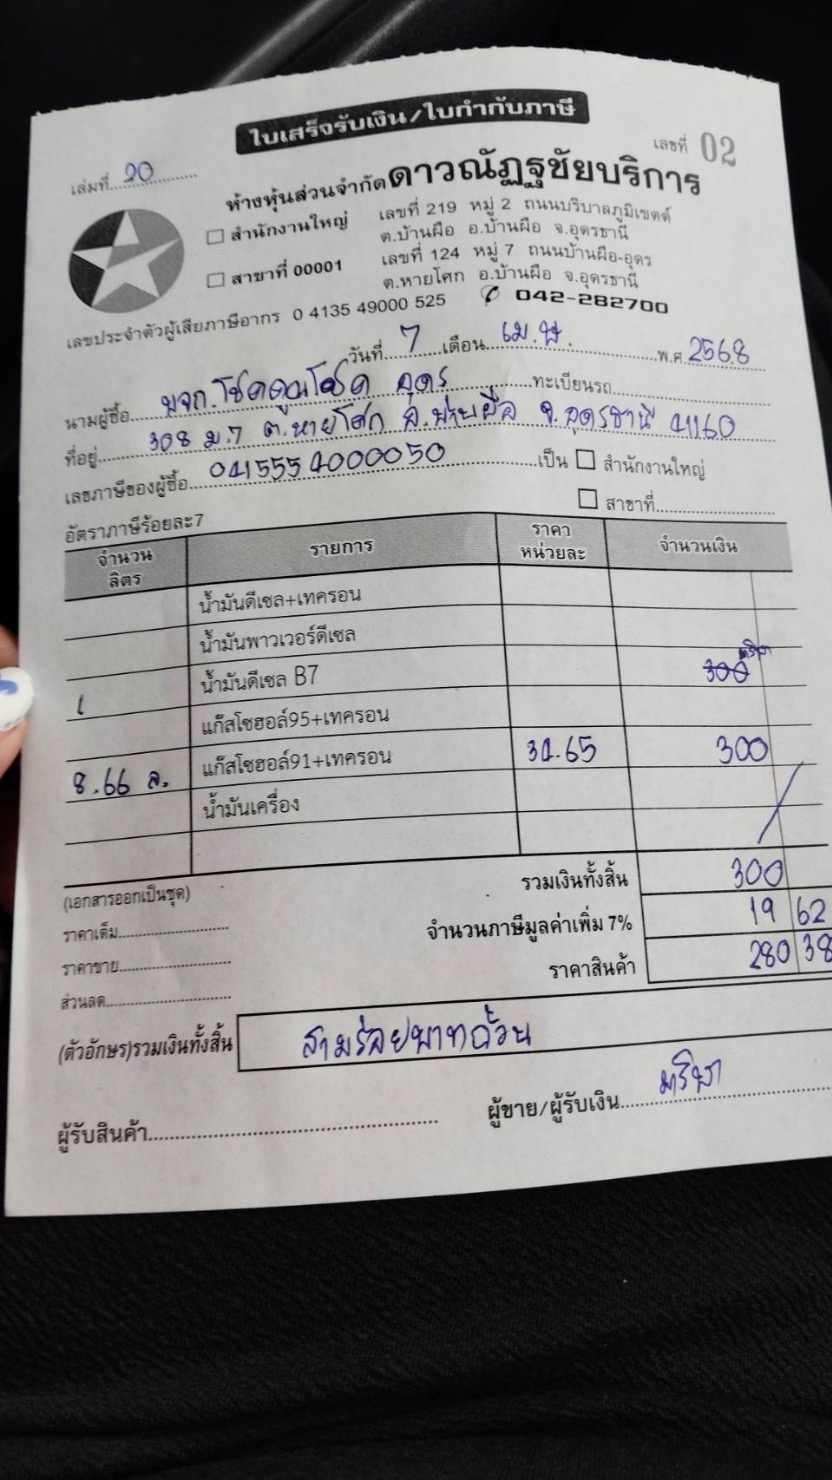 ใบเสร็จรับเงิน/ใบกำกับภาษี
เล่มที่ 20
เลขที่ 02
ห้างหุ้นส่วนจำกัดดาวณัฏฐชัยบริการ
สำนักงานใหญ่ เลขที่ 219 หมู่ 2 ถนนบริบาลภูมิเขตต์
ต.บ้านผือ อ.บ้านผือ จ.อุดรธานี
สาขาที่ 00001 เลขที่ 124 หมู่ 7 ถนนบ้านผือ-อุดร
ต.หายโศก อ.บ้านผือ จ.อุดรธานี
เลขประจำตัวผู้เสียภาษีอากร 0 4135 49000 525 042-282700
วันที่ 7 เดือน เม.ษ. พ.ศ. 2568
นามผู้ซื้อ โชคคูณโชค อุดร ทะเบียนรถ
ที่อยู่ 308 ม.7 ต.หายโศก อ.บ้านผือ จ.อุดรธานี 41160
เลขภาษีของผู้ซื้อ 0415554000050 เป็น สำนักงานใหญ่
สาขาที่
อัตราภาษีร้อยละ7
จำนวน ลิตร รายการ ราคา หน่วยละ จำนวนเงิน
น้ำมันดีเซล+เทครอน
น้ำมันพาวเวอร์ดีเซล
น้ำมันดีเซล B7 300
แก๊สโซฮอล์95+เทครอน
8.66 ล. แก๊สโซฮอล์91+เทครอน 34.65 300
น้ำมันเครื่อง
(เอกสารออกเป็นชุด) รวมเงินทั้งสิ้น 300
ราคาเต็ม จำนวนภาษีมูลค่าเพิ่ม 7% 19 62
ราคาขาย ราคาสินค้า 280 38
ส่วนลด
(ตัวอักษร)รวมเงินทั้งสิ้น สามร้อยบาทถ้วน
ผู้รับสินค้า ผู้ขาย/ผู้รับเงิน